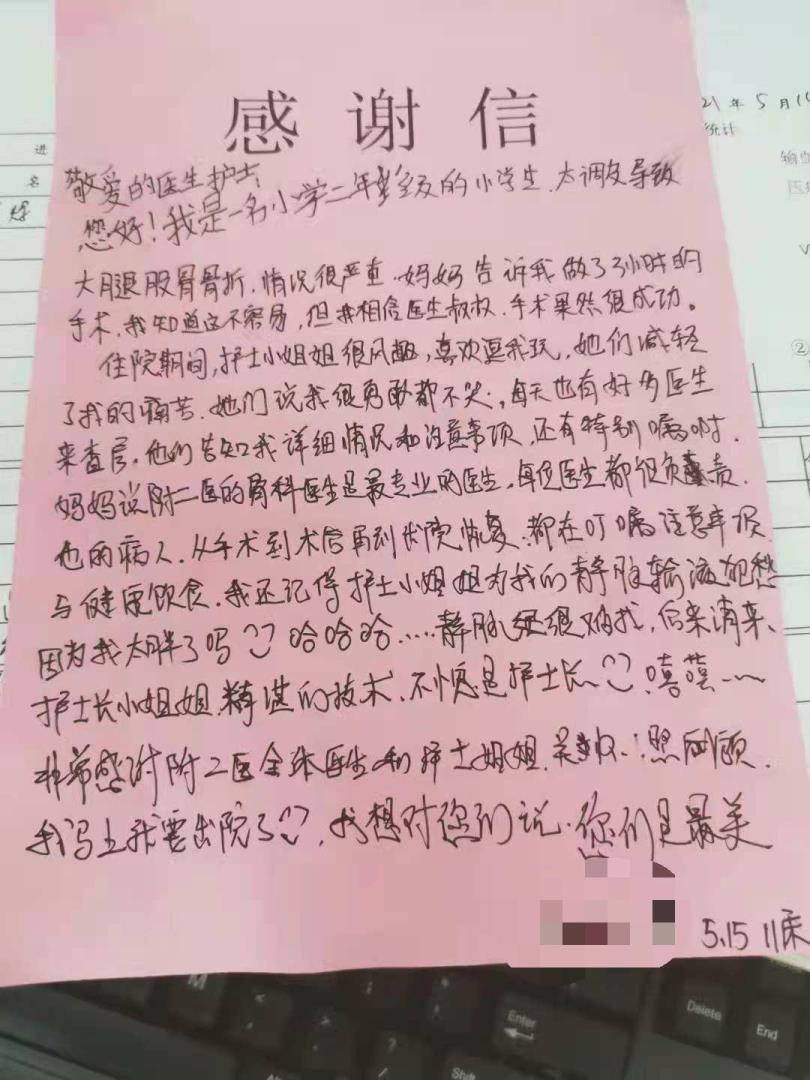 感谢信
敬爱的医生护士:
您好!我是一名小学二年级的小学生.太调皮导致
大腿股骨骨折,情况很严重.妈妈告诉我做了3小时的
手术.我知道这不容易,但我相信医生叔叔.手术果然很成功。
住院期间,护士小姐姐很风趣,喜欢逗我玩,她们减轻
了我的痛苦.她们说我很勇敢都不哭.每天也有好多医生
来查房.他们告知我详细情况和注意事项,还有特别嘱咐.
妈妈说附二医的骨科医生是最专业的医生,每位医生都很负责.
他的病人.从手术到术后再到出院恢复.都在叮嘱注意事项
与健康饮食.我还记得护士小姐姐为我的静脉输液犯愁
因为我太胖了吗 哈哈哈.....静脉很难找.后来请来、
护士长小姐姐.精湛的技术.不愧是护士长 .嘻嘻~~
非常感谢附二医全体医生和护士姐姐、照顾.
我马上就要出院了 .我想对您们说.您们是最美
5.15 11床
21年5月1
统计
进
名
②
M
Enter
Delete
End
Shift
Alt